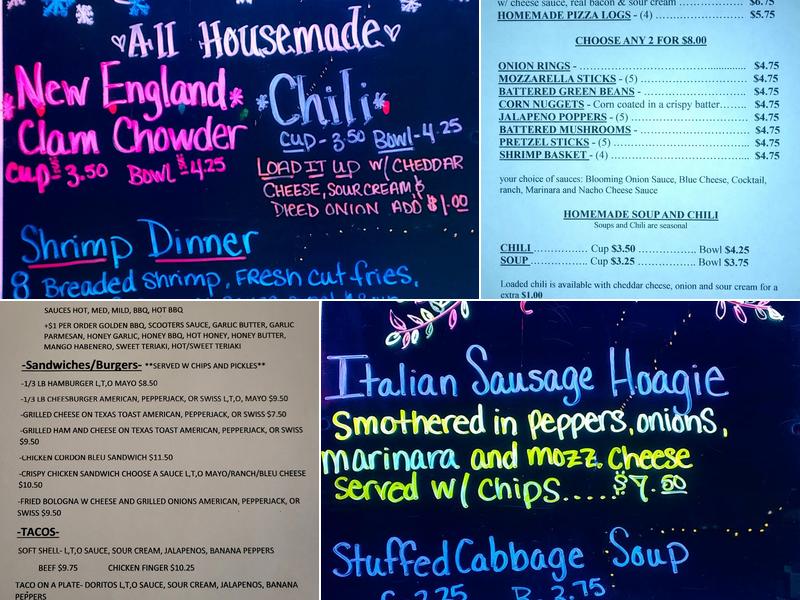 All Housemade
New England
Clam Chowder
Cup - 3.50 Bowl - 4.25
Chili
Cup - 3.50 Bowl - 4.25
LOAD IT UP W/ CHEDDAR
CHEESE, SOUR CREAM, &
DICED ONION ADD $1.00
Shrimp Dinner
8 Breaded shrimp, FRESH cut fries,
w/ cheese sauce, real bacon & sour cream ........................ $6.75
HOMEMADE PIZZA LOGS - (4) ........................ $5.75
CHOOSE ANY 2 FOR $8.00
ONION RINGS - ........................ $4.75
MOZZARELLA STICKS - (5) ........................ $4.75
BATTERED GREEN BEANS - ........................ $4.75
CORN NUGGETS - Corn coated in a crispy batter........ $4.75
JALAPENO POPPERS - (5) ........................ $4.75
BATTERED MUSHROOMS - ........................ $4.75
PRETZEL STICKS - (5) ........................ $4.75
SHRIMP BASKET - (4) ........................ $4.75
your choice of sauces: Blooming Onion Sauce, Blue Cheese, Cocktail,
ranch, Marinara and Nacho Cheese Sauce
HOMEMADE SOUP AND CHILI
Soups and Chili are seasonal
CHILI ............... Cup $3.50 .................... Bowl $4.25
SOUP ............... Cup $3.25 .................... Bowl $3.75
Loaded chili is available with cheddar cheese, onion and sour cream for a
extra $1.00
SAUCES HOT, MED, MILD, BBQ, HOT BBQ
+$1 PER ORDER GOLDEN BBQ, SCOOTERS SAUCE, GARLIC BUTTER, GARLIC
PARMESAN, HONEY GARLIC, HONEY BBQ, HOT HONEY, HONEY BUTTER,
MANGO HABENERO, SWEET TERIAKI, HOT/SWEET TERIAKI
-Sandwiches/Burgers- **SERVED W CHIPS AND PICKLES**
-1/3 LB HAMBURGER L,T,O MAYO $8.50
-1/3 LB CHEESBURGER AMERICAN, PEPPERJACK, OR SWISS L,T,O, MAYO $9.50
-GRILLED CHEESE ON TEXAS TOAST AMERICAN, PEPPERJACK, OR SWISS $7.50
-GRILLED HAM AND CHEESE ON TEXAS TOAST AMERICAN, PEPPERJACK, OR SWISS
$9.50
-CHICKEN CORDON BLEU SANDWICH $11.50
-CRISPY CHICKEN SANDWICH CHOOSE A SAUCE L,T,O MAYO/RANCH/BLEU CHEESE
$10.50
-FRIED BOLOGNA W CHEESE AND GRILLED ONIONS AMERICAN, PEPPERJACK, OR
SWISS $9.50
-TACOS-
SOFT SHELL- L,T,O SAUCE, SOUR CREAM, JALAPENOS, BANANA PEPPERS
BEEF $9.75 CHICKEN FINGER $10.25
TACO ON A PLATE- DORITOS L,T,O SAUCE, SOUR CREAM, JALAPENOS, BANANA
PEPPERS
Italian Sausage Hoagie
Smothered in peppers, onions,
marinara and mozz. Cheese
served w/ chips.....$7.50
Stuffed Cabbage Soup
C 3.25 B 3.75